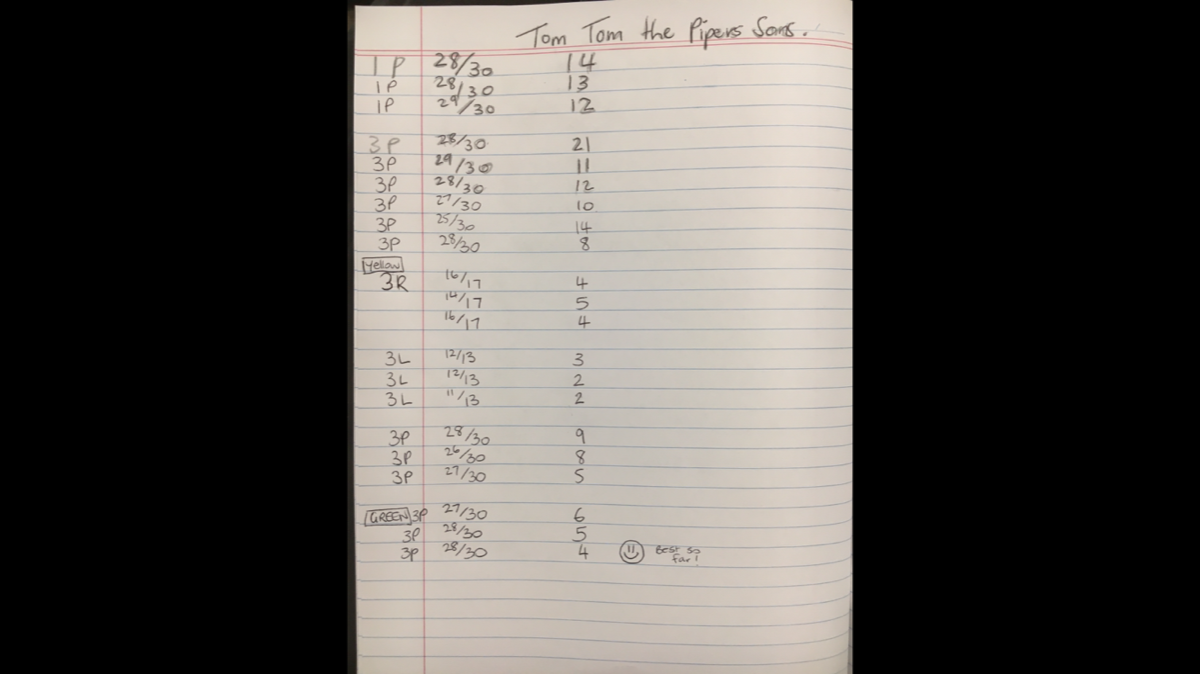 Tom Tom the Pipers Sons.
1P 28/30 14
1P 28/30 13
1P 29/30 12
3P 28/30 21
3P 29/30 11
3P 28/30 12
3P 27/30 10
3P 25/30 14
3P 28/30 8
Yellow
3R 16/17 4
14/17 5
16/17 4
3L 12/13 3
3L 12/13 2
3L 11/13 2
3P 28/30 9
3P 26/30 8
3P 27/30 5
GREEN 3P 27/30 6
3P 28/30 5
3P 28/30 4 Best so
far!